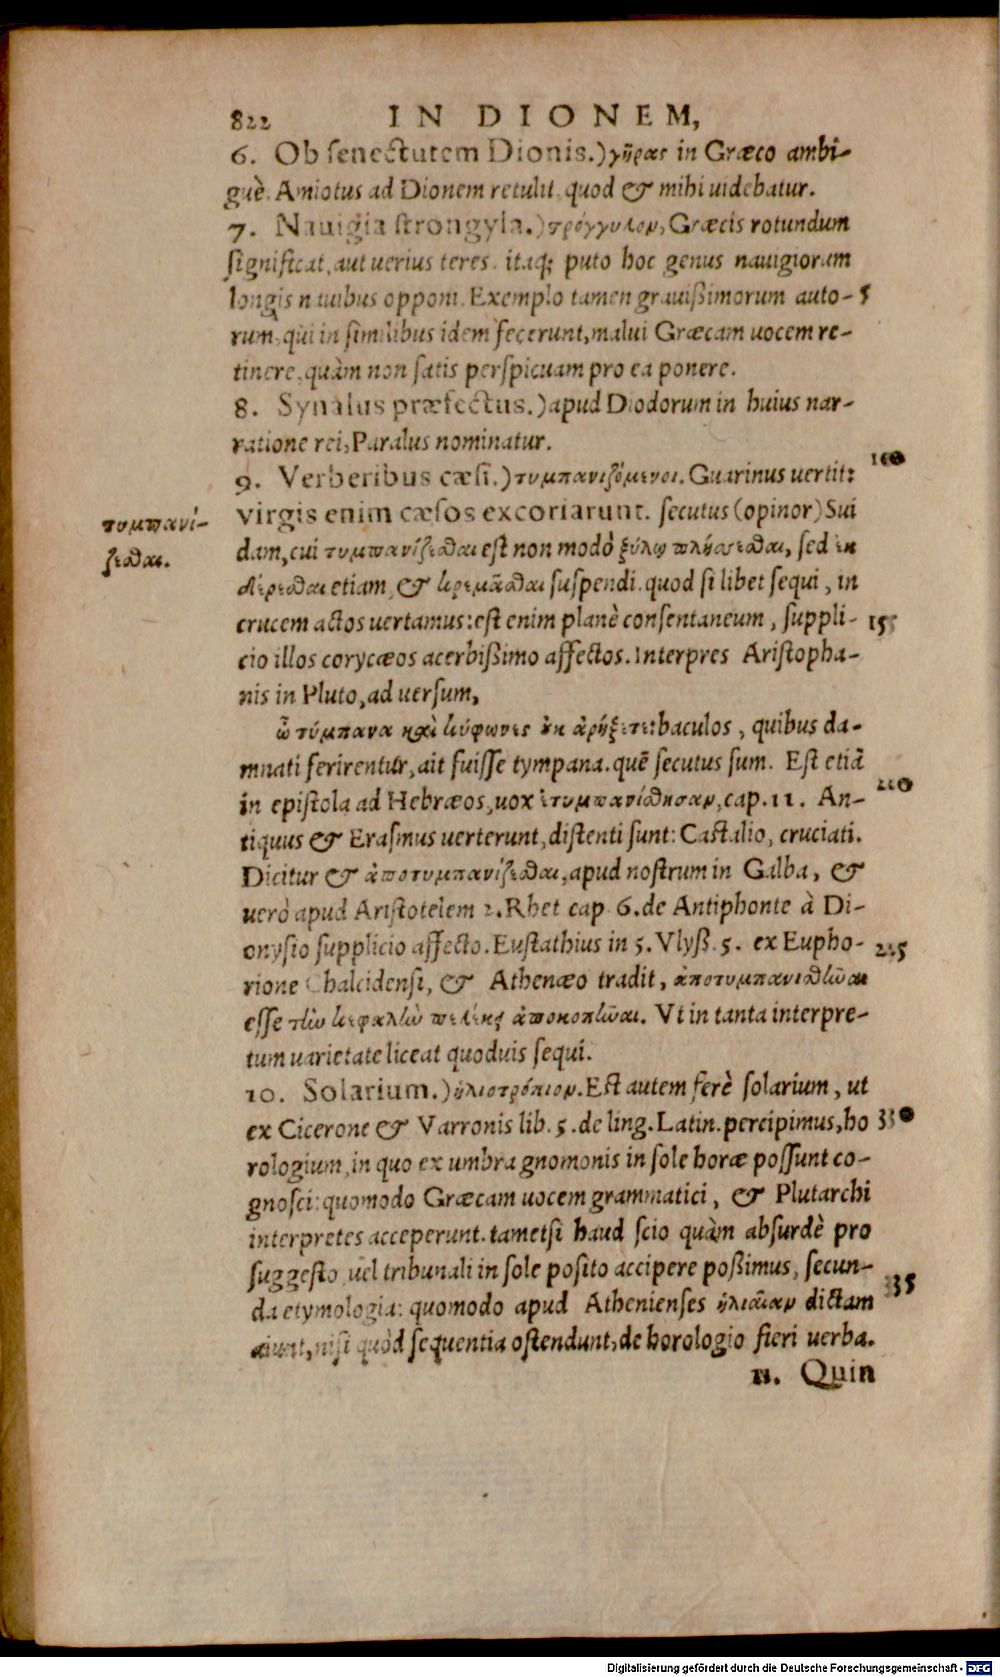 822 IN DIONEM,
6. Ob senectutem Dionis.) γῆρας in Græco ambi-
guè. Amiotus ad Dionem retulit, quod & mihi uidebatur.
7. Nauigia strongyla.) στρόγγυλον, Græcis rotundum
significat, aut uerius teres. itaq; puto hoc genus nauigiorum
longis nauibus opponi. Exemplo tamen grauißimorum auto- 5
rum, qui in similibus idem fecerunt, malui Græcam uocem re-
tinere, quàm non satis perspicuam pro ea ponere.
8. Synalus præfectus.) apud Diodorum in huius nar-
ratione rei, Paralus nominatur.
9. Verberibus cæsi.) τυμπανιζόμενοι. Guarinus uertit: 10
virgis enim cæsos excoriarunt. secutus (opinor) Sui
τυμπανί-
ζεσθαι.
dam, cui τυμπανίζεσθαι est non modò ξύλῳ πλήσσεσθαι, sed ἐκ
δέρεσθαι etiam, & κρεμᾶσθαι suspendi. quod si libet sequi, in
crucem actos uertamus: est enim planè consentaneum, suppli- 15
cio illos corycæos acerbißimo affectos. Interpres Aristopha-
nis in Pluto, ad uersum,
ὦ τύμπανα καὶ κύφωνες ἐκ ἀρήξετε: baculos, quibus da-
mnati ferirentur, ait fuisse tympana. quē secutus sum. Est etiā
in epistola ad Hebræos, uox ἐτυμπανίσθησαν, cap. 11. An- 20
tiquus & Erasmus uerterunt, distenti sunt: Castalio, cruciati.
Dicitur & ἀποτυμπανίζεσθαι, apud nostrum in Galba, &
uerò apud Aristotelem 2. Rhet cap 6. de Antiphonte à Di-
onysio supplicio affecto. Eustathius in 5. Vlyß. 5. ex Eupho- 25
rione Chalcidensi, & Athenæo tradit, ἀποτυμπανισθῶναι
esse τὴν κεφαλὴν πελέκει ἀποκοπῶναι. Vt in tanta interpre-
tum uarietate liceat quoduis sequi.
10. Solarium.) ἡλιοτρόπιον. Est autem ferè solarium, ut
ex Cicerone & Varronis lib. 5. de ling. Latin. percipimus, ho 30
rologium, in quo ex umbra gnomonis in sole horæ possunt co-
gnosci: quomodo Græcam uocem grammatici, & Plutarchi
interpretes acceperunt. tametsi haud scio quàm absurdè pro
suggesto uel tribunali in sole posito accipere poßimus, secun-
da etymologia: quomodo apud Athenienses ἡλιαίαν dictam 35
aiunt, nisi quòd sequentia ostendunt, de horologio fieri uerba.
11. Quin
Digitalisierung gefördert durch die Deutsche Forschungsgemeinschaft - DFG